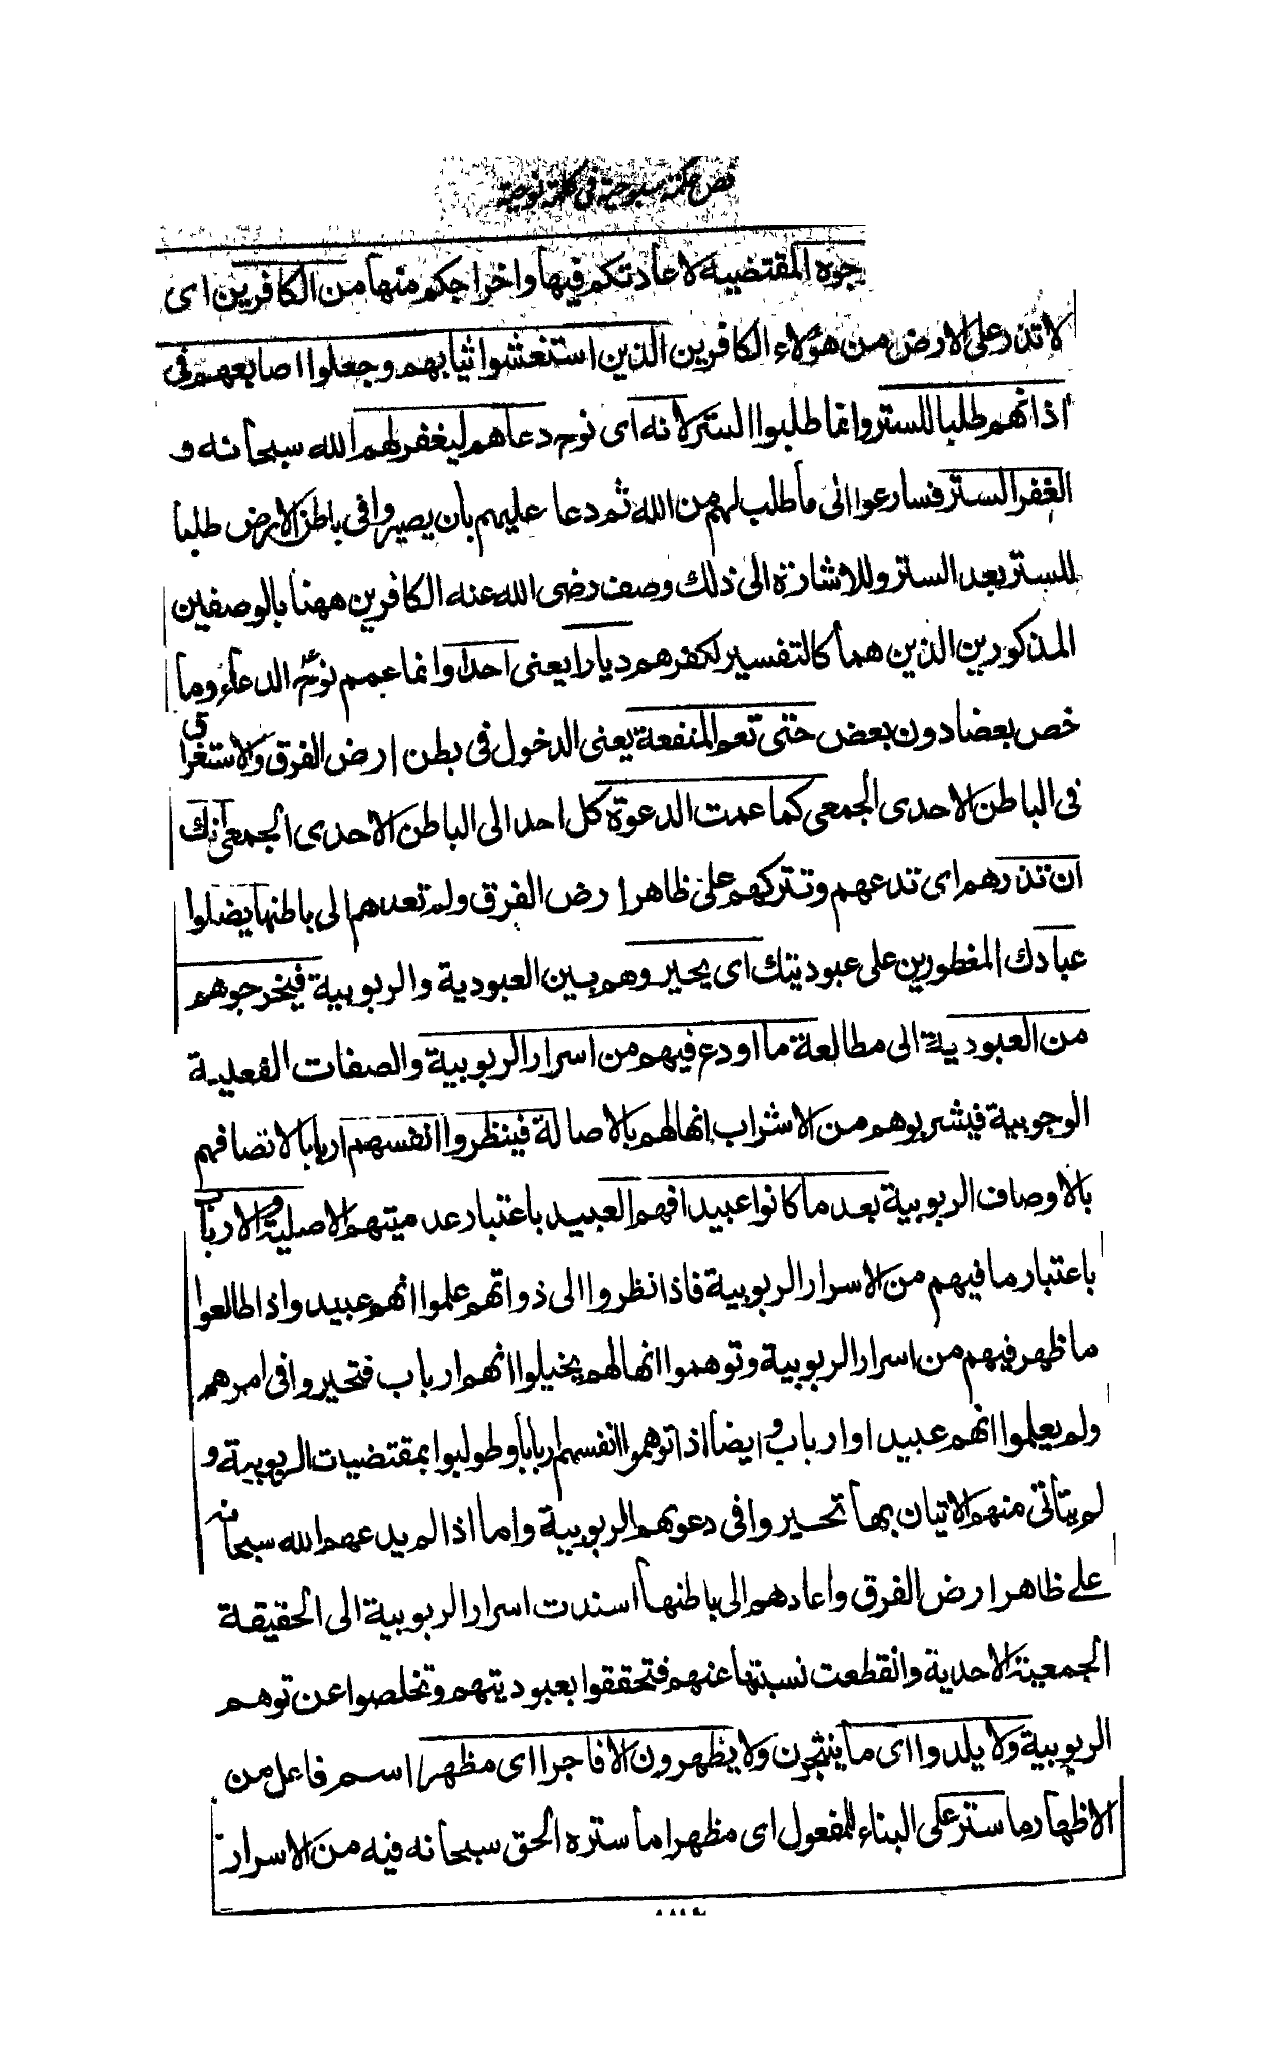 فص حكمة سبوحية في كلمة نوحية
جوه المقتضية لاعادتكم فيها واخراجكم منها من الكافرين اى
لا تذر على الارض من هؤلاء الكافرين الذين استغشوا ثيابهم وجعلوا اصابعهم فى
اذانهم طلبا للستر وانما طلبوا الستر لانه اى نوح دعاهم ليغفر لهم الله سبحانه و
الغفر الستر فسارعوا الى ما طلب لهم من الله ثم دعا عليهم بأن يصيروا فى باطن الارض طلبا
للستر بعد الستر وللاشارة الى ذلك وصف رضى الله عنه الكافرين ههنا بالوصفين
المذكورين الذين هما كالتفسير لكفرهم ديارا يعنى احدا وانما عمم نوح الدعاء وما
خص بعضا دون بعض حتى تعم المنفعة يعنى الدخول فى بطن ارض الفرق والاستغراق
فى الباطن الاحدى الجمعى كما عمت الدعوة كل احد الى الباطن الاحدى الجمعى انك
ان تذرهم اى تدعهم وتتركهم على ظاهر ارض الفرق ولم تعدهم الى باطنها يضلوا
عبادك المفطورين على عبوديتك اى يحيروهم بين العبودية والربوبية فيخرجوهم
من العبودية الى مطالعة ما اودع فيهم من اسرار الربوبية والصفات الفعلية
الوجوبية فيشربوهم من الاشراب انها لهم بالاصالة فينظروا انفسهم اربابا لاتصافهم
بالاوصاف الربوبية بعد ما كانوا عبيدا فهم العبيد باعتبار عدميتهم الاصلية والارباب
باعتبار ما فيهم من الاسرار الربوبية فاذا نظروا الى ذواتهم علموا انهم عبيد واذا طالعوا
ما ظهر فيهم من اسرار الربوبية وتوهموا انها لهم يخيلوا انهم ارباب فتحيروا فى امرهم
ولم يعلموا انهم عبيد او ارباب وايضا اذا توهموا انفسهم اربابا وطولبوا بمقتضيات الربوبية و
لم يتأتى منهم الاتيان بها تحيروا فى دعويهم الربوبية واما اذا لم يدعهم الله سبحانه
على ظاهر ارض الفرق واعادهم الى باطنها اسندت اسرار الربوبية الى الحقيقة
الجمعية الاحدية وانقطعت نسبتها عنهم فتحققوا بعبوديتهم وتخلصوا عن توهم
الربوبية ولا يلدوا اى ما ينتجون ولا يظهرون الا فاجرا اى مظهرا اسم فاعل من
الاظهار ما ستر على البناء للمفعول اى مظهرا ما ستره الحق سبحانه فيه من الاسرار